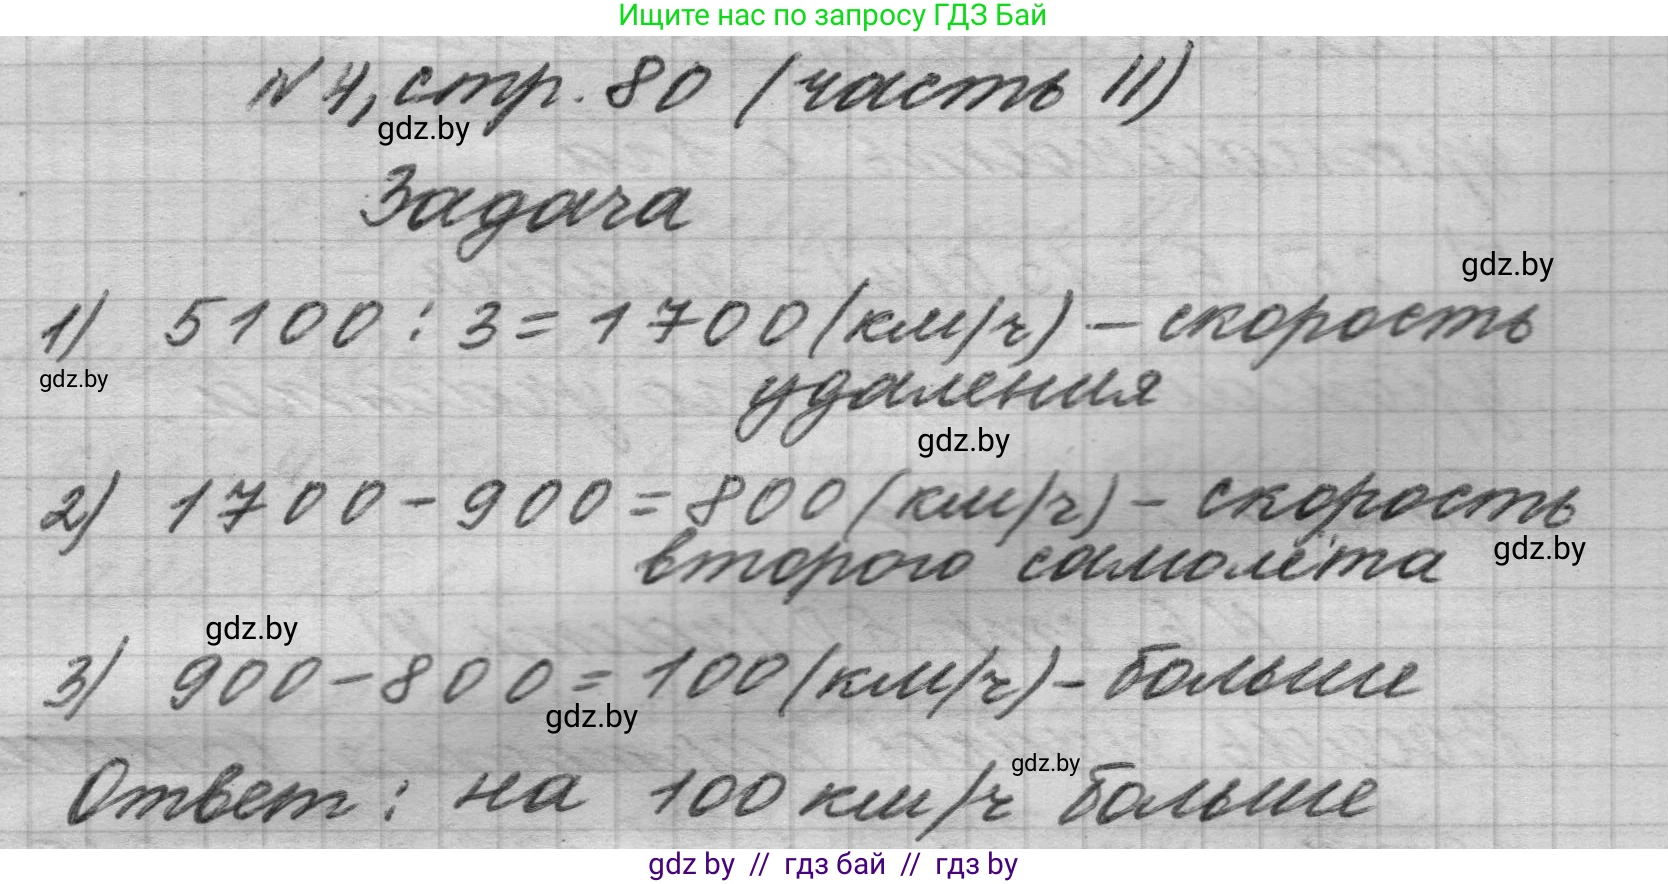 Ищите нас по запросу ГДЗ Бай
№4, стр. 80 (часть II)
gdz.by
Задача
gdz.by
1) 5100 : 3 = 1700 (км/ч) – скорость
gdz.by
удаления
gdz.by
2) 1700 – 900 = 800 (км/ч) – скорость
второго самолёта
gdz.by
gdz.by
3) 900 – 800 = 100 (км/ч) – больше
gdz.by
gdz.by
Ответ: на 100 км/ч больше
gdz by // гдз бай // гдз by